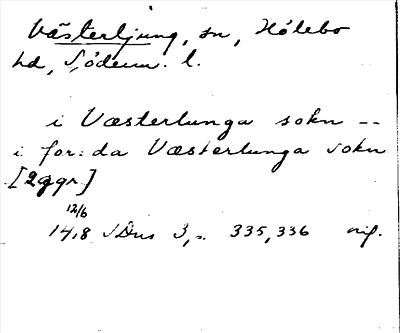 Västerljung, sn, Hölebo
hd, Söderm. l.
i Væsterlunga sokn --
i for:da Væsterlunga sokn
[2ggr]
12/6
1418 SDns 3, s. 335, 336 orig.